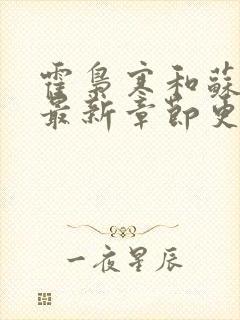 霍梟寒和蘇
最新章節更
一夜星辰